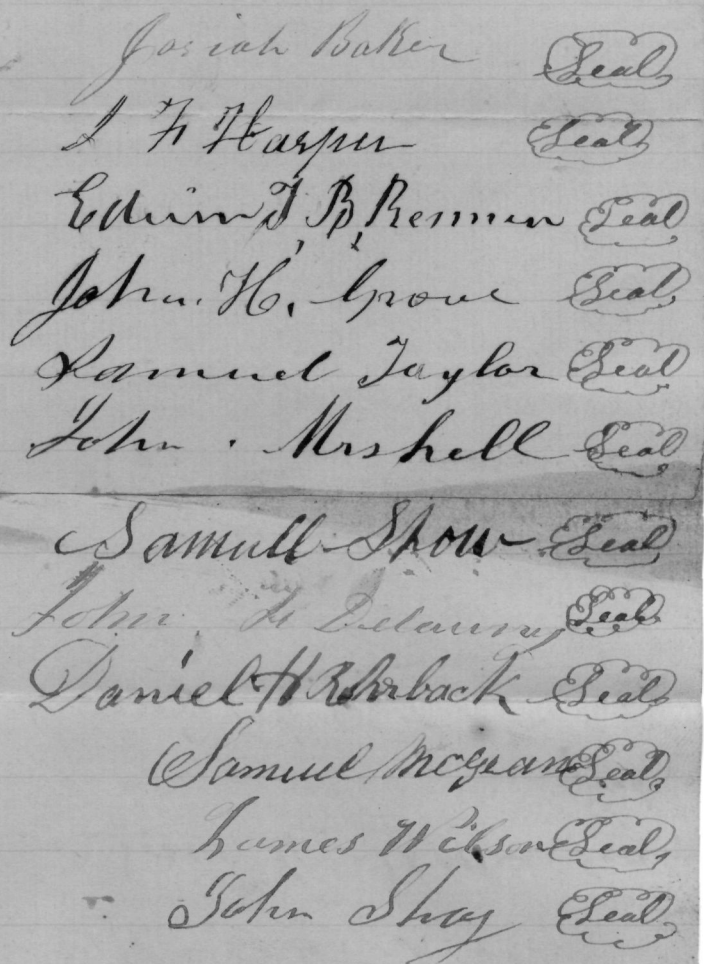 Josiah Baker Seal
J H Harper Seal
Edwin T, B, Brennen Seal
John. H. Grove Seal
Samuel Taylor Seal
John . Mrshell Seal
Samuell Show Seal
John H Delauney Seal
Daniel H Rhrback Seal
Samuel McGran Seal
James Wilson Seal
John Shay Seal